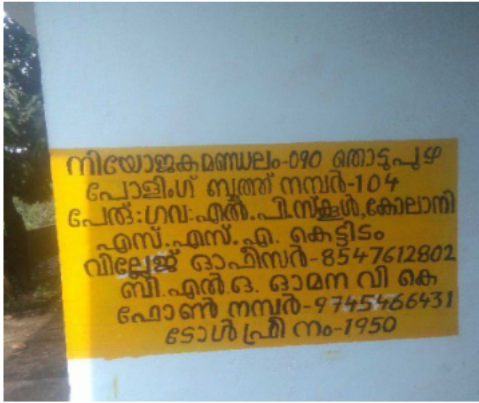 നിയോജകമണ്ഡലം-090 തൊടുപുഴ
പോളിംഗ് ബൂത്ത് നമ്പർ-104
പേര്:ഗവ:എൽ.പി.സ്കൂൾ,കോലാനി
എസ്.എസ്.എ. കെട്ടിടം
വില്ലേജ് ഓഫീസർ-8547612802
ബി.എൽ.ഒ. ഓമന വി കെ
ഫോൺ നമ്പർ-9745466431
ടോൾ ഫ്രീ നം-1950